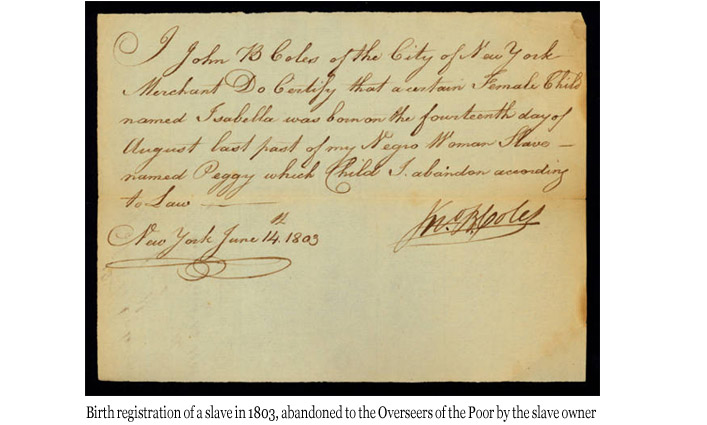 I John B Coles of the City of New York
Merchant Do Certify that a certain Female Child
named Isabella was born on the fourteenth day of
August last past of my Negro Woman Slave –
named Peggy which Child I abandon according
to Law —
New York June 14th. 1803
Jno. B. Coles
Birth registration of a slave in 1803, abandoned to the Overseers of the Poor by the slave owner